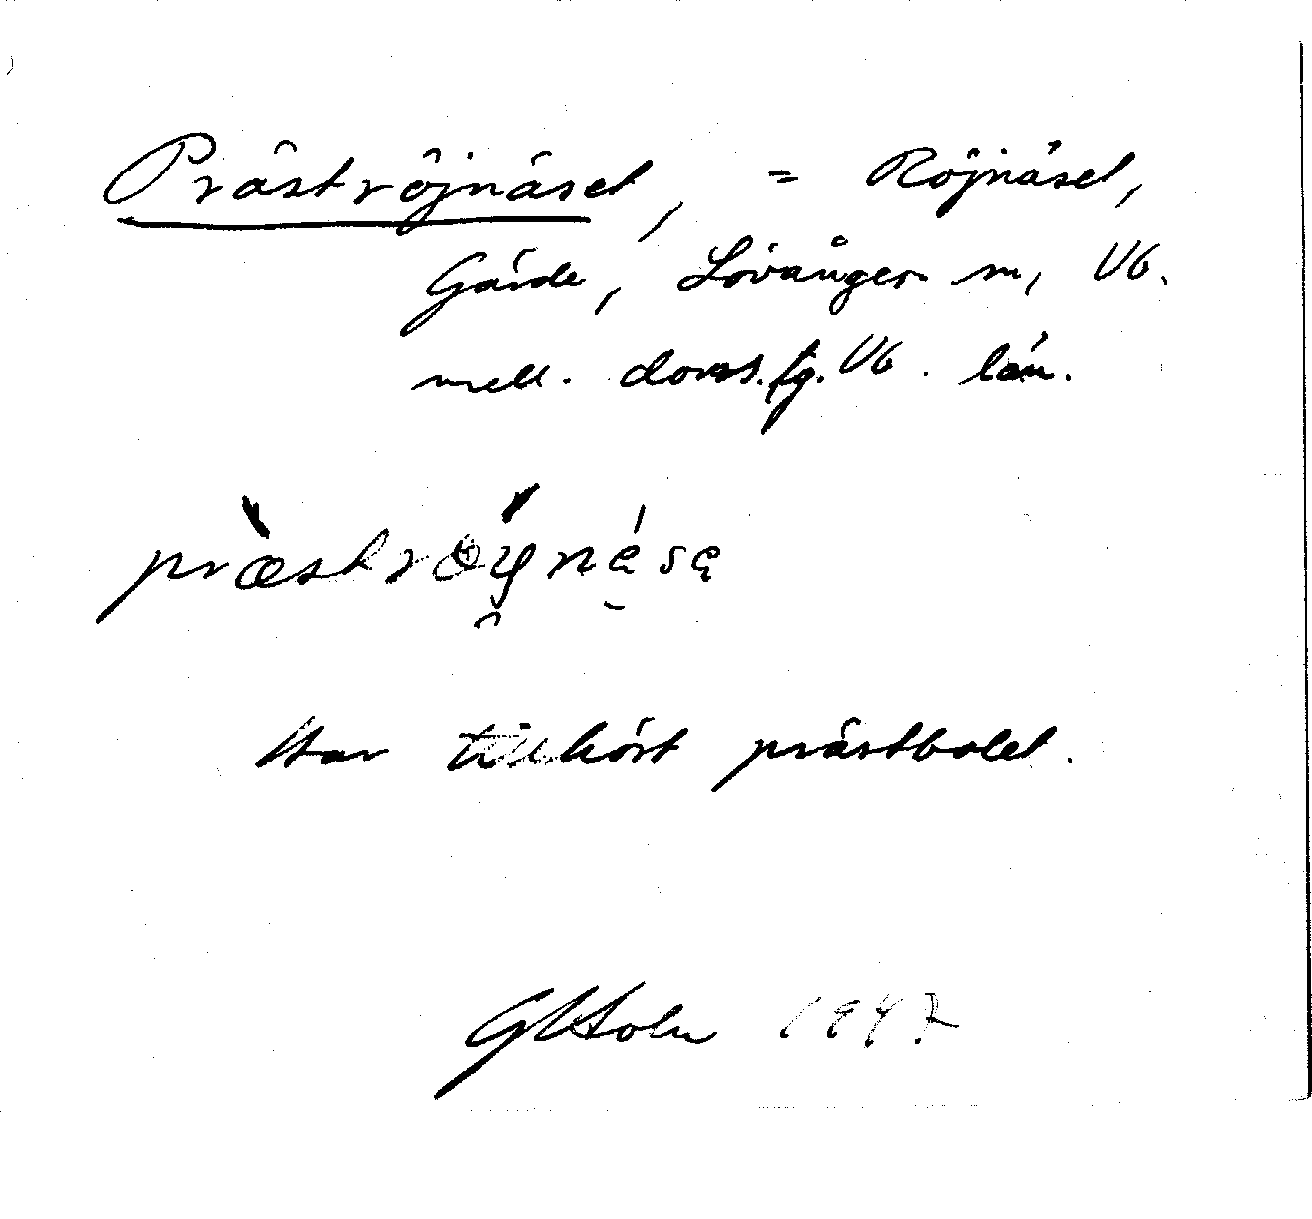 Präströjnäset, = Röjnäset,
Gärde, Lövånger sn, Vb.
mell. doms.sg. Vb. län.
præströy̯næ̀sę
Har tillhört prästbolet.
G Holm 1947